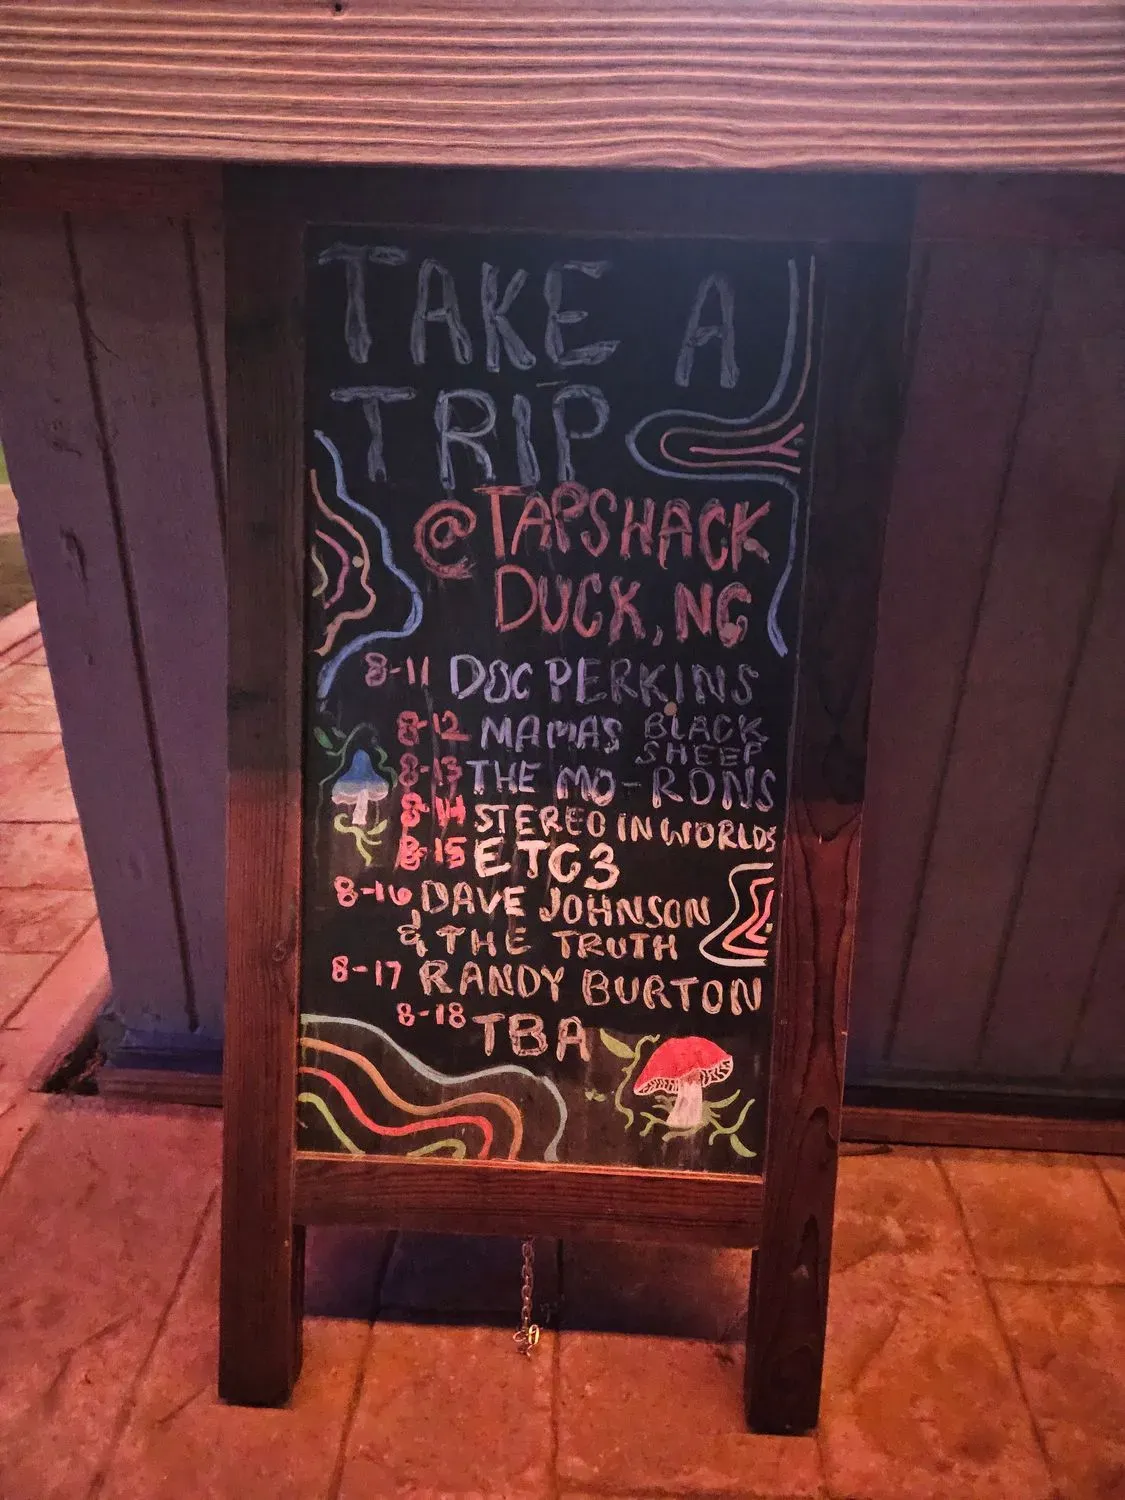 TAKE A
TRIP
@ TAPSHACK
DUCK, NC
8-11 DOC PERKINS
8-12 MAMAS BLACK
SHEEP
8-13 THE MO-RONS
8-14 STEREO IN WORLDS
8-15 ETC3
8-16 DAVE JOHNSON
& THE TRUTH
8-17 RANDY BURTON
8-18 TBA